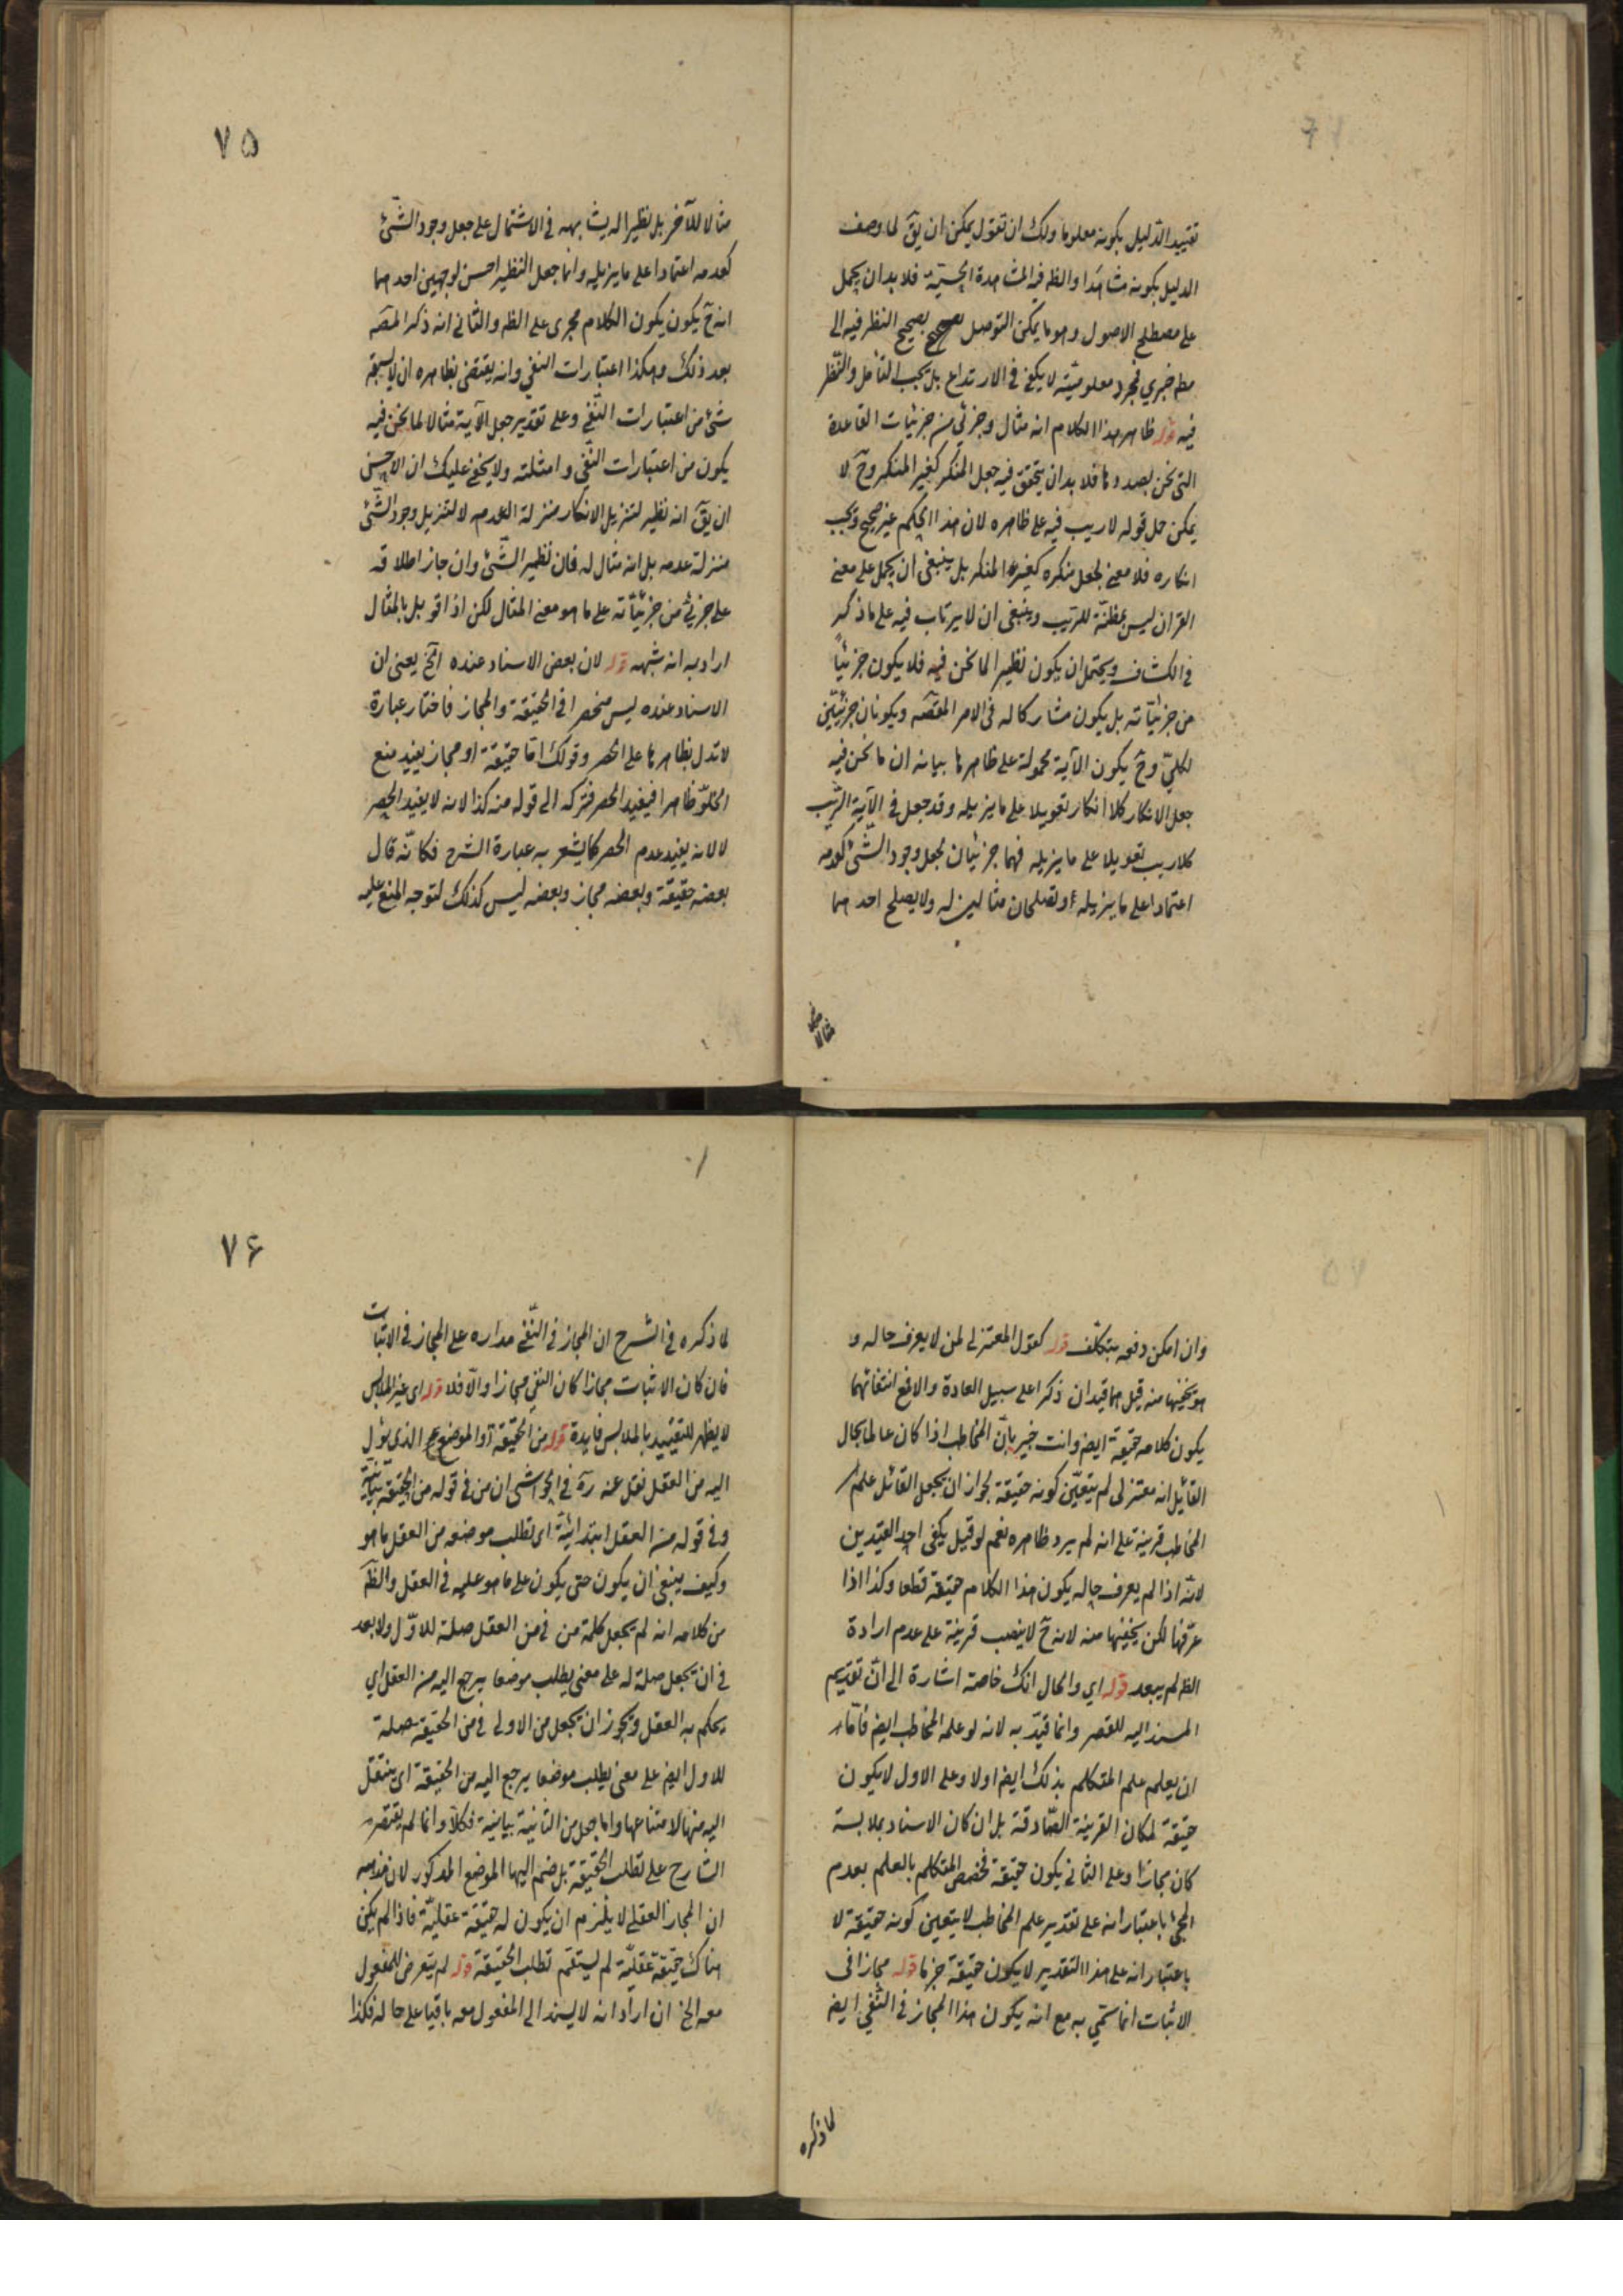 تقييد الدليل بكونه معلوما ولك ان تقول يمكن ان يقٓ لما وصف
الدليل بكونه مشاهَدا والظ فيه المشاهدة الحسيّة فلا بد ان يحمل
على مصطلح الاصول وهو ما يمكن التوصل بصحيح النظر فيه الى
مط خبري فمجرد معلوميّته لا يكفي في الارتداع بل يجب التأمل والنّظر
فيه قوله ظاهر هذا الكلام انه مثال وجزئي من جزئيات القاعدة
التى نحن بصددها فلا بد ان يتحقق فيه جعل المنكر كغير المنكر وحٓ لا
يمكن حمل قوله لا ريب فيه على ظاهره لان هذا الحكم غير صحيح ويجب
انكاره فلا معنى لجعل منكره كغير المنكر بل ينبغى ان يحمل على معنى
القران ليس بمظنّة للريب وينبغى ان لا يرتاب فيه على ما ذكر
فى الكشاف ويحتمل ان يكون نظيرا لما نحن فيه فلا يكون جزئياً
من جزئيّاته بل يكون مشاركا له فى الامر المقتضٓ ويكونان جزئيّين
لكليّ وحٓ يكون الآية محمولة على ظاهرها بيانه ان ما نحن فيه
جعل الانكار كلا انكار تعويلا على ما يزيله وقد جعل فى الآية الرّيب
كلا ريب تعويلا على ما يزيله فهما جزئيان لجعل وجود الشّئ كعدمه
اعتمادا على ما يزيله وتصلحان مثالين له ولا يصلح احدهما
مثالا
٧٥
مثالا للآخر بل نظيرا له يشابهه فى الاشتمال على جعل وجود الشّئ
كعدمه اعتمادا على ما يزيله وانما جعل النظير احسن لوجهين احدهما
انه حٓ يكون يكون الكلام مجرى على الظ والثانى انه ذكر المصٓ
بعد ذلك وهكذا اعتبارات النفي وانه يقتضى بظاهره ان لا يسبقه
شئ من اعتبارات النّفي وعلى تقدير جعل الآية مثالا لما نحن فيه
يكون من اعتبارات النّفي وامثلته ولا يخفى عليك ان الاحسن
ان يقٓ انه نظير لتنزيل الانكار منزلة العدم لا لتنزيل وجود الشّئ
منزلة عدمه بل انه مثال له فان نظير الشّئ وان جاز اطلاقه
على جزئى من جزئيّاته على ما هو معنى المثال لكن اذا قوبل بالمثال
اراد به انه شبهه قوله لان بعض الاسناد عنده آلخ يعنى ان
الاسناد عنده ليس منحصرا فى الحقيقة والمجاز فاختار عبارة
لا تدل بظاهرها على الحصر وقولك امّا حقيقة او مجاز يفيد منع
الخلوّ ظاهرا فيفيد الحصر فتركه الى قوله منه كذا لانه لا يفيد الحصر
لا لانه يفيد عدم الحصر كما يشعر به عبارة الشرح فكانّه قال
بعضه حقيقة وبعضه مجاز وبعضه ليس كذلك لتوجه المنع عليه
وان امكن دفعه بتكلّف قوله كقول المعتزلى لمن لا يعرف حاله و
هو يخفيها منه قيل هما قيدان ذكرا على سبيل العادة والا فمع انتفائهما
يكون كلامه حقيقة ايضا وانت خبير بانّ المخاطب اذا كان عالما بحال
القائل انه معتزلى لم يتعيّن كونه حقيقة لجواز ان يجعل القائل علم
المخاطب قرينة على انه لم يرد ظاهره نعم لو قيل يكفى احد القيدين
لانّه اذا لم يعرف حاله يكون هذا الكلام حقيقة قطعا وكذا اذا
عرفها لكن يخفيها منه لانه حٓ لا ينصب قرينة على عدم ارادة
الظ لم يبعد قوله اي والحال انك خاصة اشارة الى انّ تقديم
المسند اليه للقصر وانما قيّد به لانه لو علمه المخاطب ايضا فامّا
ان يعلم علم المتكلم بذلك ايضا اولا وعلى الاول لا يكون
حقيقة لمكان القرينة الصّارفة بل ان كان الاسناد بملابسة
كان مجازا وعلى الثانى يكون حقيقة فخصص المتكلم بالعلم بعدم
المجئ باعتبار انه على تقدير علم المخاطب لا يتعين كونه حقيقة لا
باعتبار انه على هذا التقدير لا يكون حقيقة جزما قوله مجازا فى
الاثبات انما سمّي به مع انه يكون هذا المجاز فى النّفي ايضا
لما ذكره
٧۶
لما ذكره فى الشرح ان المجاز فى النّفي مداره على المجاز فى الاثبات
فان كان الاثبات مجازا كان النفي مجازا والّا فلا قوله اى غير الملابس
لا يظهر للتقييد بالملابس فايدة قوله من الحقيقة او الموضع الذى يؤل
اليه من العقل نقل عنه رهٓ فى الحواشى ان من فى قوله من الحقيقة بيانيّة
وفى قوله من العقل ابتدائيّة اى تطلب موضعه من العقل ما هو
وكيف ينبغى ان يكون حتى يكون على ما هو عليه فى العقل والظٓ
من كلامه انه لم يجعل كلمة من فى من العقل صلة للاوّل ولا بعد
فى ان يجعل صلة له على معنى يطلب موضعا يرجع اليه من العقل اي
يحكم به العقل ويجوز ان يجعل من الاولى فى من الحقيقة صلة
للاول ايضا على معنى يطلب موضعا يرجع اليه من الحقيقة اى ينتقل
اليه منها لامتناعها واما جعل من الثانية بيانية فكلّا وانما لم يقتصر
الشارح على تطلب الحقيقة بل ضم اليها الموضع المذكور لان مذهبه
ان المجاز العقلى لا يلزم ان يكون له حقيقة عقليّة فاذا لم يكن
هناك حقيقة عقليّة لم يستقم تطلب الحقيقة قوله لم يتعرض للمفعول
معه الخ ان اراد انه لا يسند الى المفعول معه باقيا على حاله فكذا